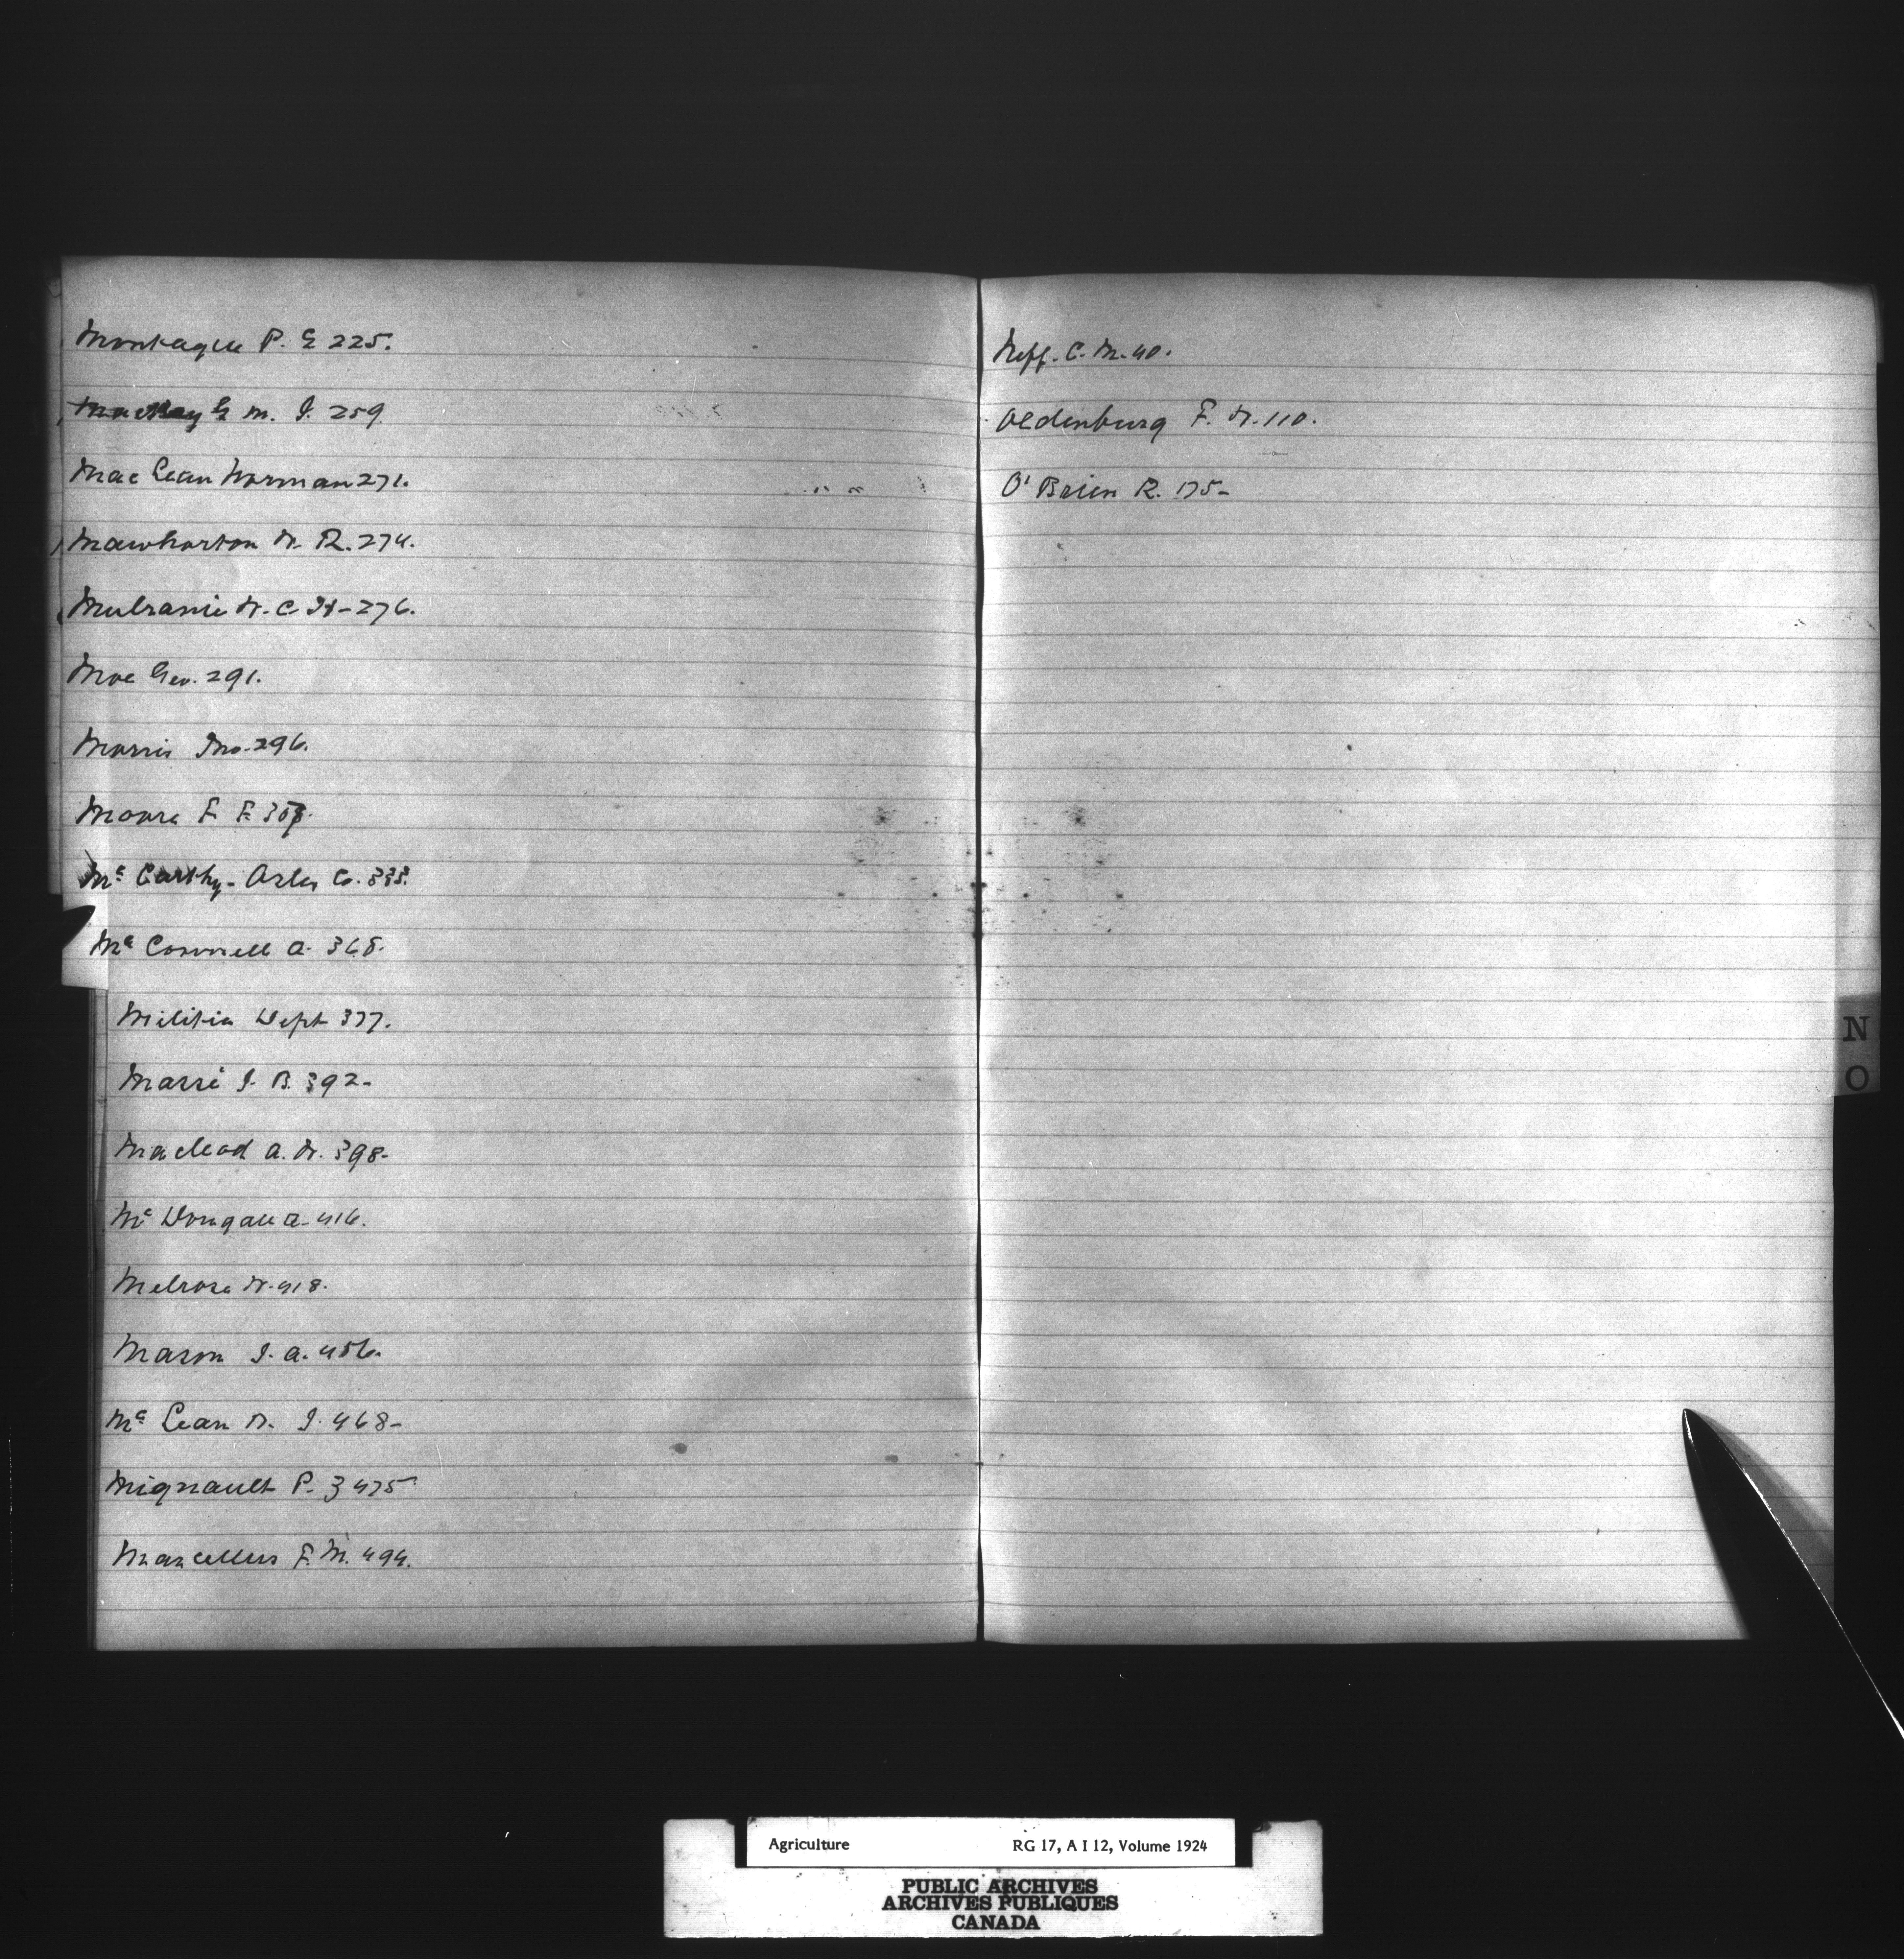 Montague P. E 225.
MacKay G M. J. 259
MacLean Norman 271.
Mawhorton W. R. 274.
Mulranie W. C. H - 276.
Moe Geo. 291.
Morris Jno. 296.
Moore F. F. 307.
Mc Carthy - Osler Co. 338.
Mc Connell A. 368.
Militia Dept 377.
Massé J. B. 392-
Macleod A. W. 398-
Mc Dougall A - 416.
Melrose W. 418.
Mason J. A. 456.
Mc Lean D. J. 468-
Mignault P. B 475
Marcellus F. M. 494.
Neff. C. M. 40.
Oldenburg F. W. 110.
O'Brien R. 175-
N
O
Agriculture RG 17, A I 12, Volume 1924
PUBLIC ARCHIVES
ARCHIVES PUBLIQUES
CANADA